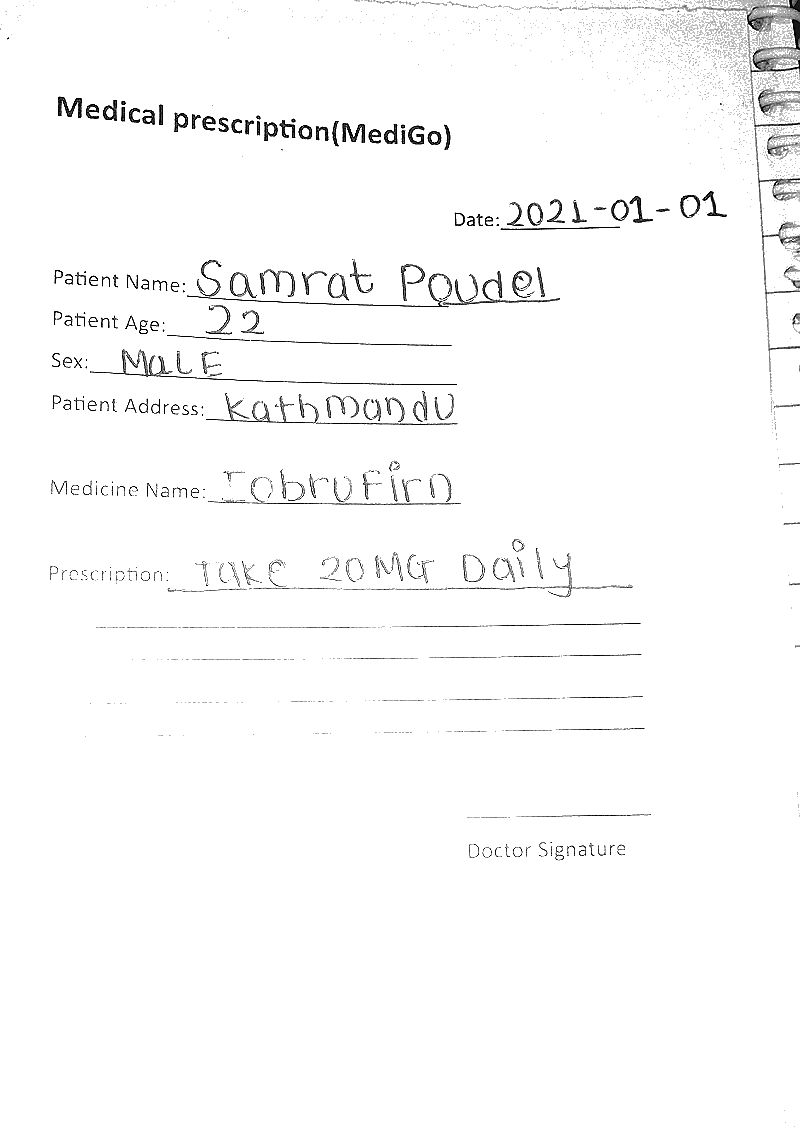 Medical prescription(MediGo)
Date: 2021-01-01
Patient Name: Samrat Poudel
Patient Age: 22
Sex: MaLE
Patient Address: Kathmandu
Medicine Name: IobruFirn
Prescription: Take 20MG Daily
Doctor Signature